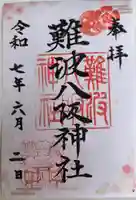 奉拝
難波八阪神社
令和七年六月二日
難波
神社